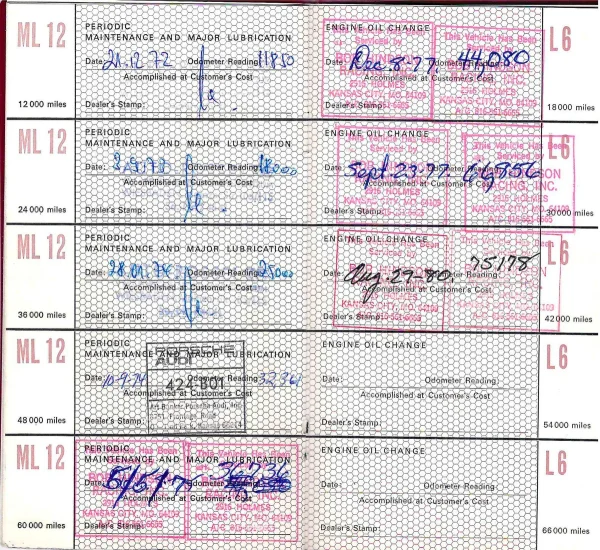 ML 12
PERIODIC
MAINTENANCE AND MAJOR LUBRICATION
Date: 21.12.72 Odometer Reading: 11850
Accomplished at Customer's Cost
12000 miles
Dealer's Stamp:
ENGINE OIL CHANGE
L6
This Vehicle Has Been
Serviced by
Date: Dec. 8-77. Odometer Reading: 44,080
Accomplished at Customer's Cost
2915 HOLMES
KANSAS CITY, MO. 64109
Dealer's Stamp:
18000 miles
ML 12
PERIODIC
MAINTENANCE AND MAJOR LUBRICATION
Date: Odometer Reading: 18000
Accomplished at Customer's Cost
24000 miles
Dealer's Stamp:
ENGINE OIL CHANGE
L6
This Vehicle Has Been
Serviced by
Date: Sept. 23-77. Odometer Reading:
RACING, INC.
Accomplished at Customer's Cost
2915 HOLMES
KANSAS CITY, MO. 64109
Dealer's Stamp:
30000 miles
ML 12
PERIODIC
MAINTENANCE AND MAJOR LUBRICATION
Date: Odometer Reading: 25000
Accomplished at Customer's Cost
36000 miles
Dealer's Stamp:
ENGINE OIL CHANGE
L6
This Vehicle Has Been
Serviced by
Date: Aug. 29-80. Odometer Reading: 75178
Accomplished at Customer's Cost
2915 HOLMES
KANSAS CITY, MO. 64109
Dealer's Stamp:
42000 miles
ML 12
PERIODIC
MAINTENANCE AND MAJOR LUBRICATION
PORSCHE
AUDI
Date: 10-9-74 Odometer Reading: 32361
424-B01
Accomplished at Customer's Cost
Art Bunker Porsche Audi, Inc.
48000 miles
Dealer's Stamp:
ENGINE OIL CHANGE
L6
Date: Odometer Reading:
Accomplished at Customer's Cost
Dealer's Stamp:
54000 miles
ML 12
PERIODIC
MAINTENANCE AND MAJOR LUBRICATION
This Vehicle Has Been
Date: Odometer Reading: 36736
Accomplished at Customer's Cost
2915 HOLMES
KANSAS CITY, MO. 64109
60000 miles
Dealer's Stamp:
ENGINE OIL CHANGE
L6
Date: Odometer Reading:
Accomplished at Customer's Cost
Dealer's Stamp:
66000 miles